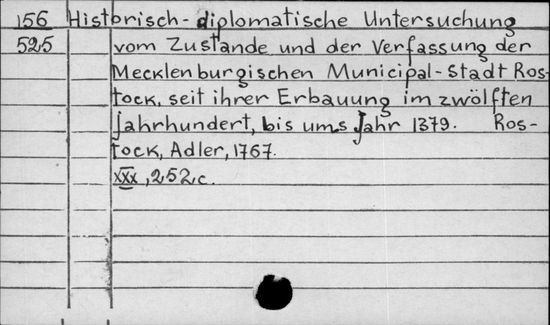 156 Historisch-diplomatische Untersuchung
525 vom Zustande und der Verfassung der
Mecklenburgischen Municipal-Stadt Ros-
tock, seit ihrer Erbauung im zwölften
Jahrhundert, bis ums Jahr 1379. Ros-
tock, Adler, 1767.
XXX, 252 c.